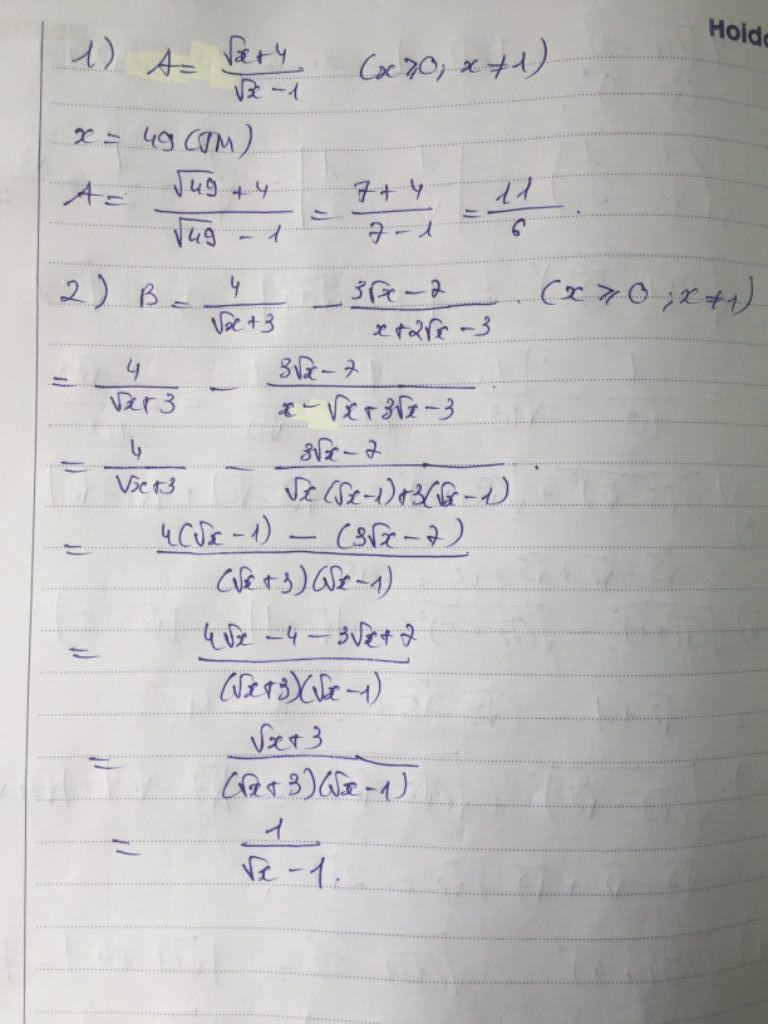 Hoidc
1) A = (√x + 4)/(√x - 1) (x ≥ 0; x ≠ 1)
x = 49 (TM)
A = (√49 + 4)/(√49 - 1) = (7 + 4)/(7 - 1) = 11/6.
2) B = 4/(√x + 3) - (3√x - 7)/(x + 2√x - 3). (x ≥ 0; x ≠ 1)
= 4/(√x + 3) - (3√x - 7)/(x - √x + 3√x - 3).
= 4/(√x + 3) - (3√x - 7)/(√x(√x - 1) + 3(√x - 1)).
= (4(√x - 1) - (3√x - 7))/((√x + 3)(√x - 1))
= (4√x - 4 - 3√x + 7)/((√x + 3)(√x - 1))
= (√x + 3)/((√x + 3)(√x - 1))
= 1/(√x - 1).